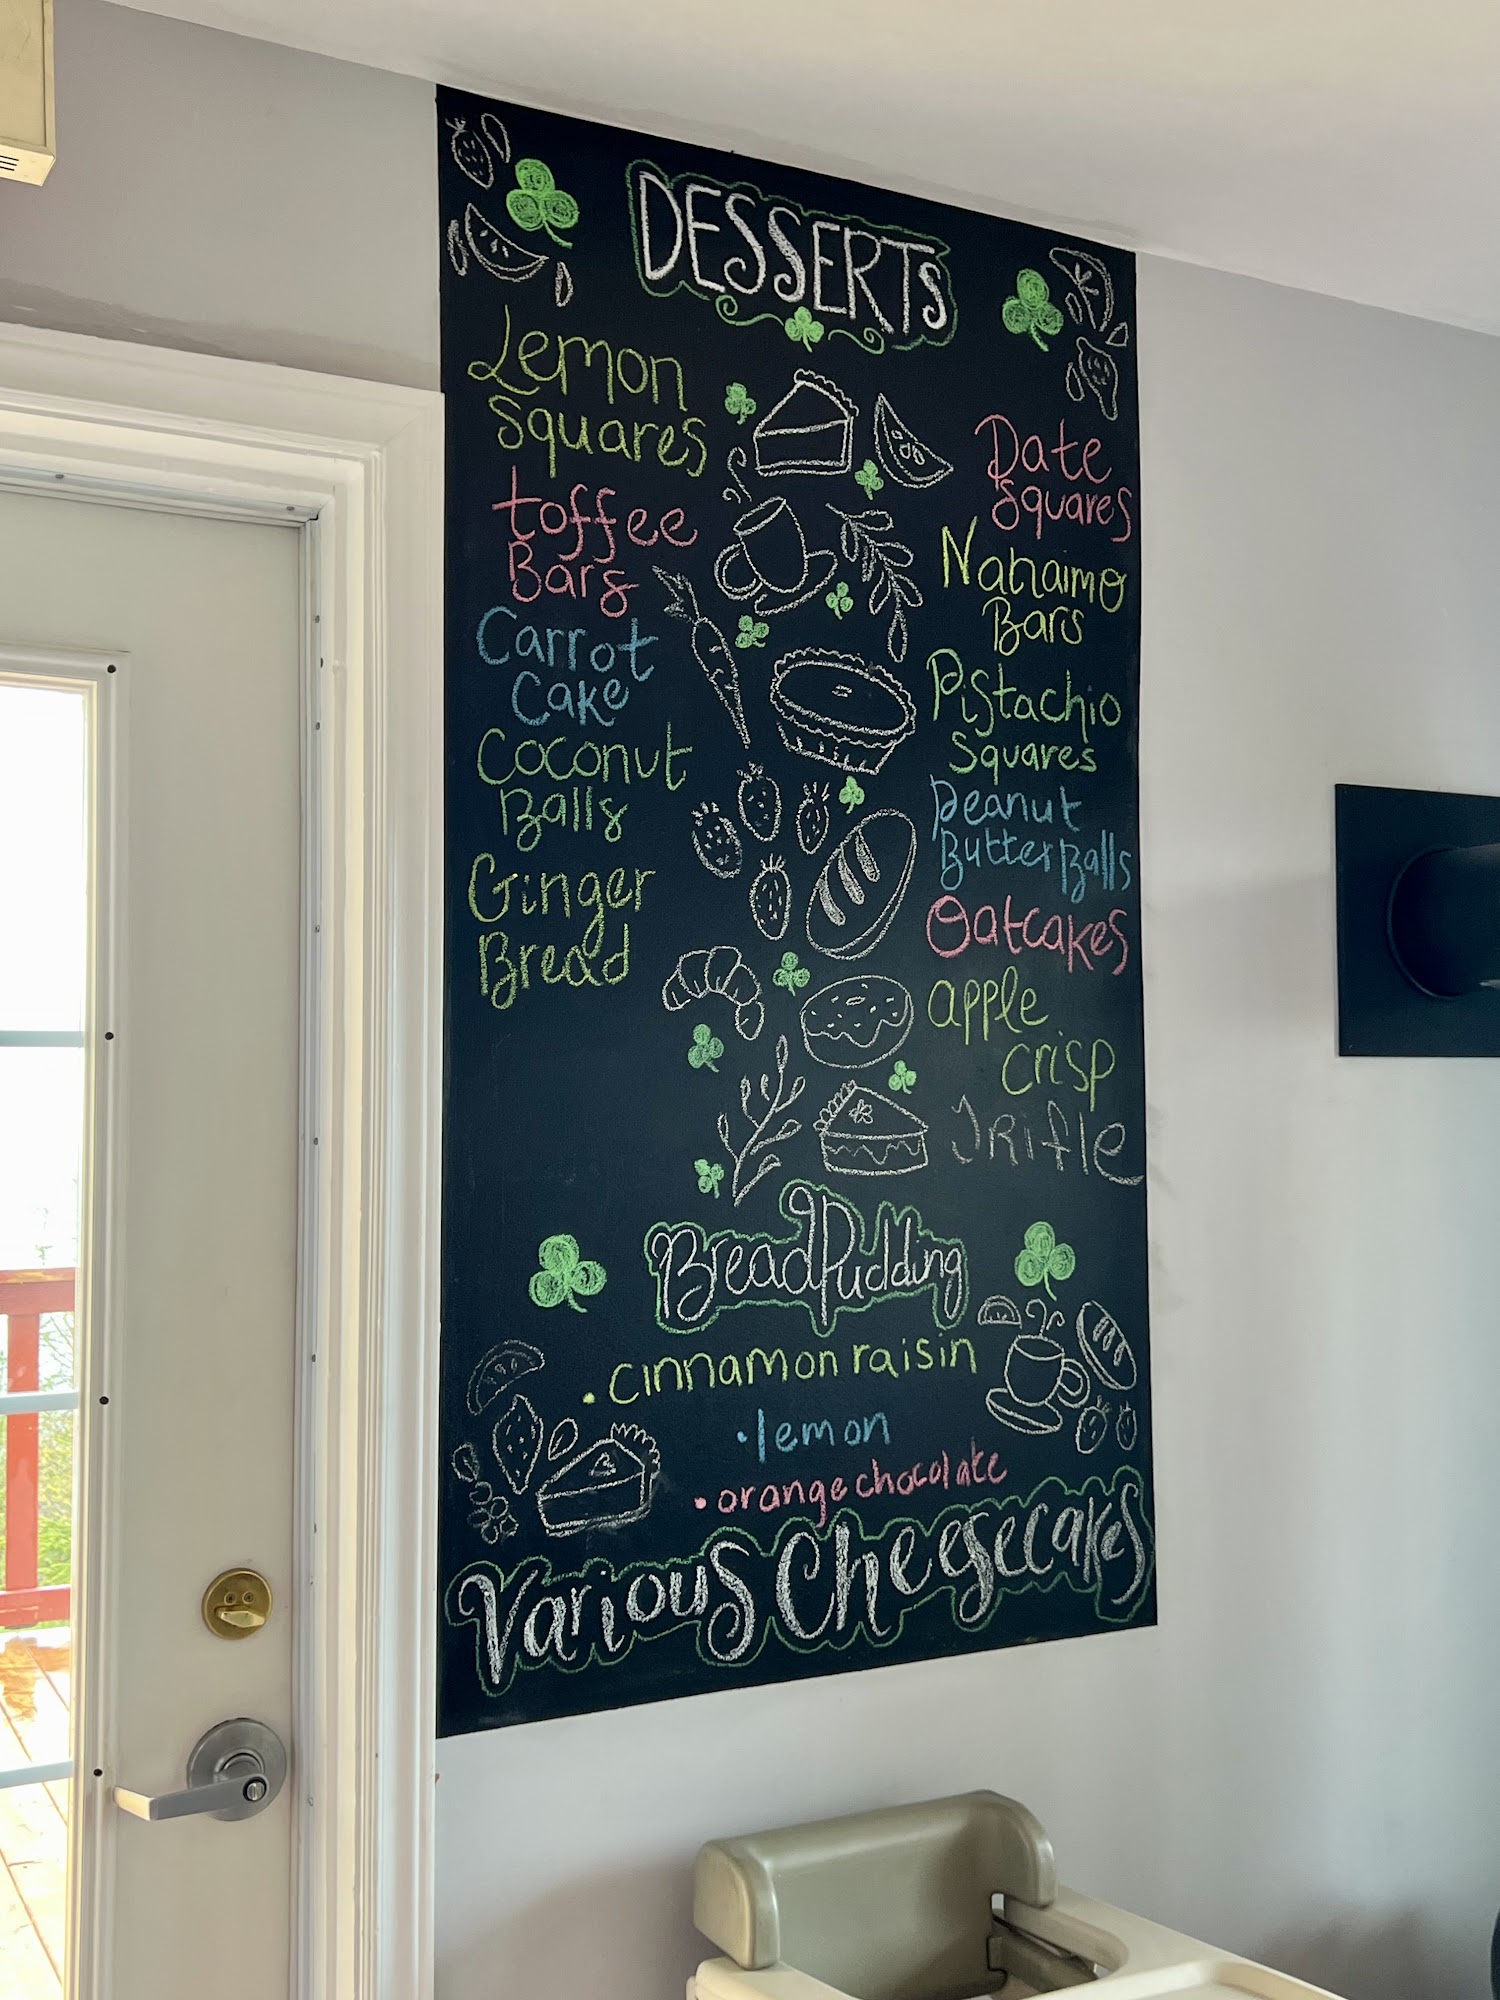 DESSERTS
Lemon
Squares
toffee
Bars
Carrot
Cake
Coconut
Balls
Ginger
Bread
Date
Squares
Nanaimo
Bars
Pistachio
Squares
Peanut
Butter Balls
Oatcakes
apple
crisp
TRifle
Bread Pudding
• cinnamon raisin
• lemon
• orange chocolate
Various Cheesecakes